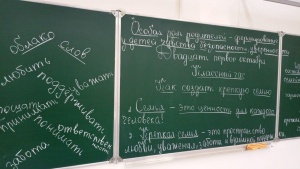 облако слов
любить
уважать
поддерживать
понимать
ответственность
забота
Особая роль родителей - формирование
у детей чувства безопасности, уверенности
Двадцать первое октября
Классный час
"Как создать крепкую семью
1. Семья - это ценность для каждого
человека!
2. Крепкая семья - это пространство
любви, уважения, заботы и взаимной